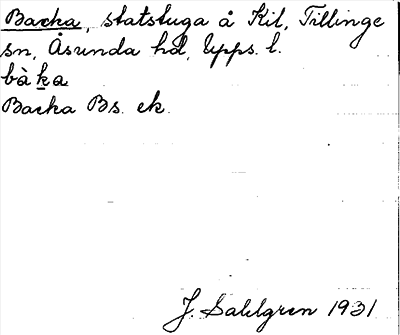 Backa, statstuga å Kil, Tillinge
sn, Åsunda hd, Upps. l.
bàka
Backa Bs. ek.
J. Sahlgren 1931